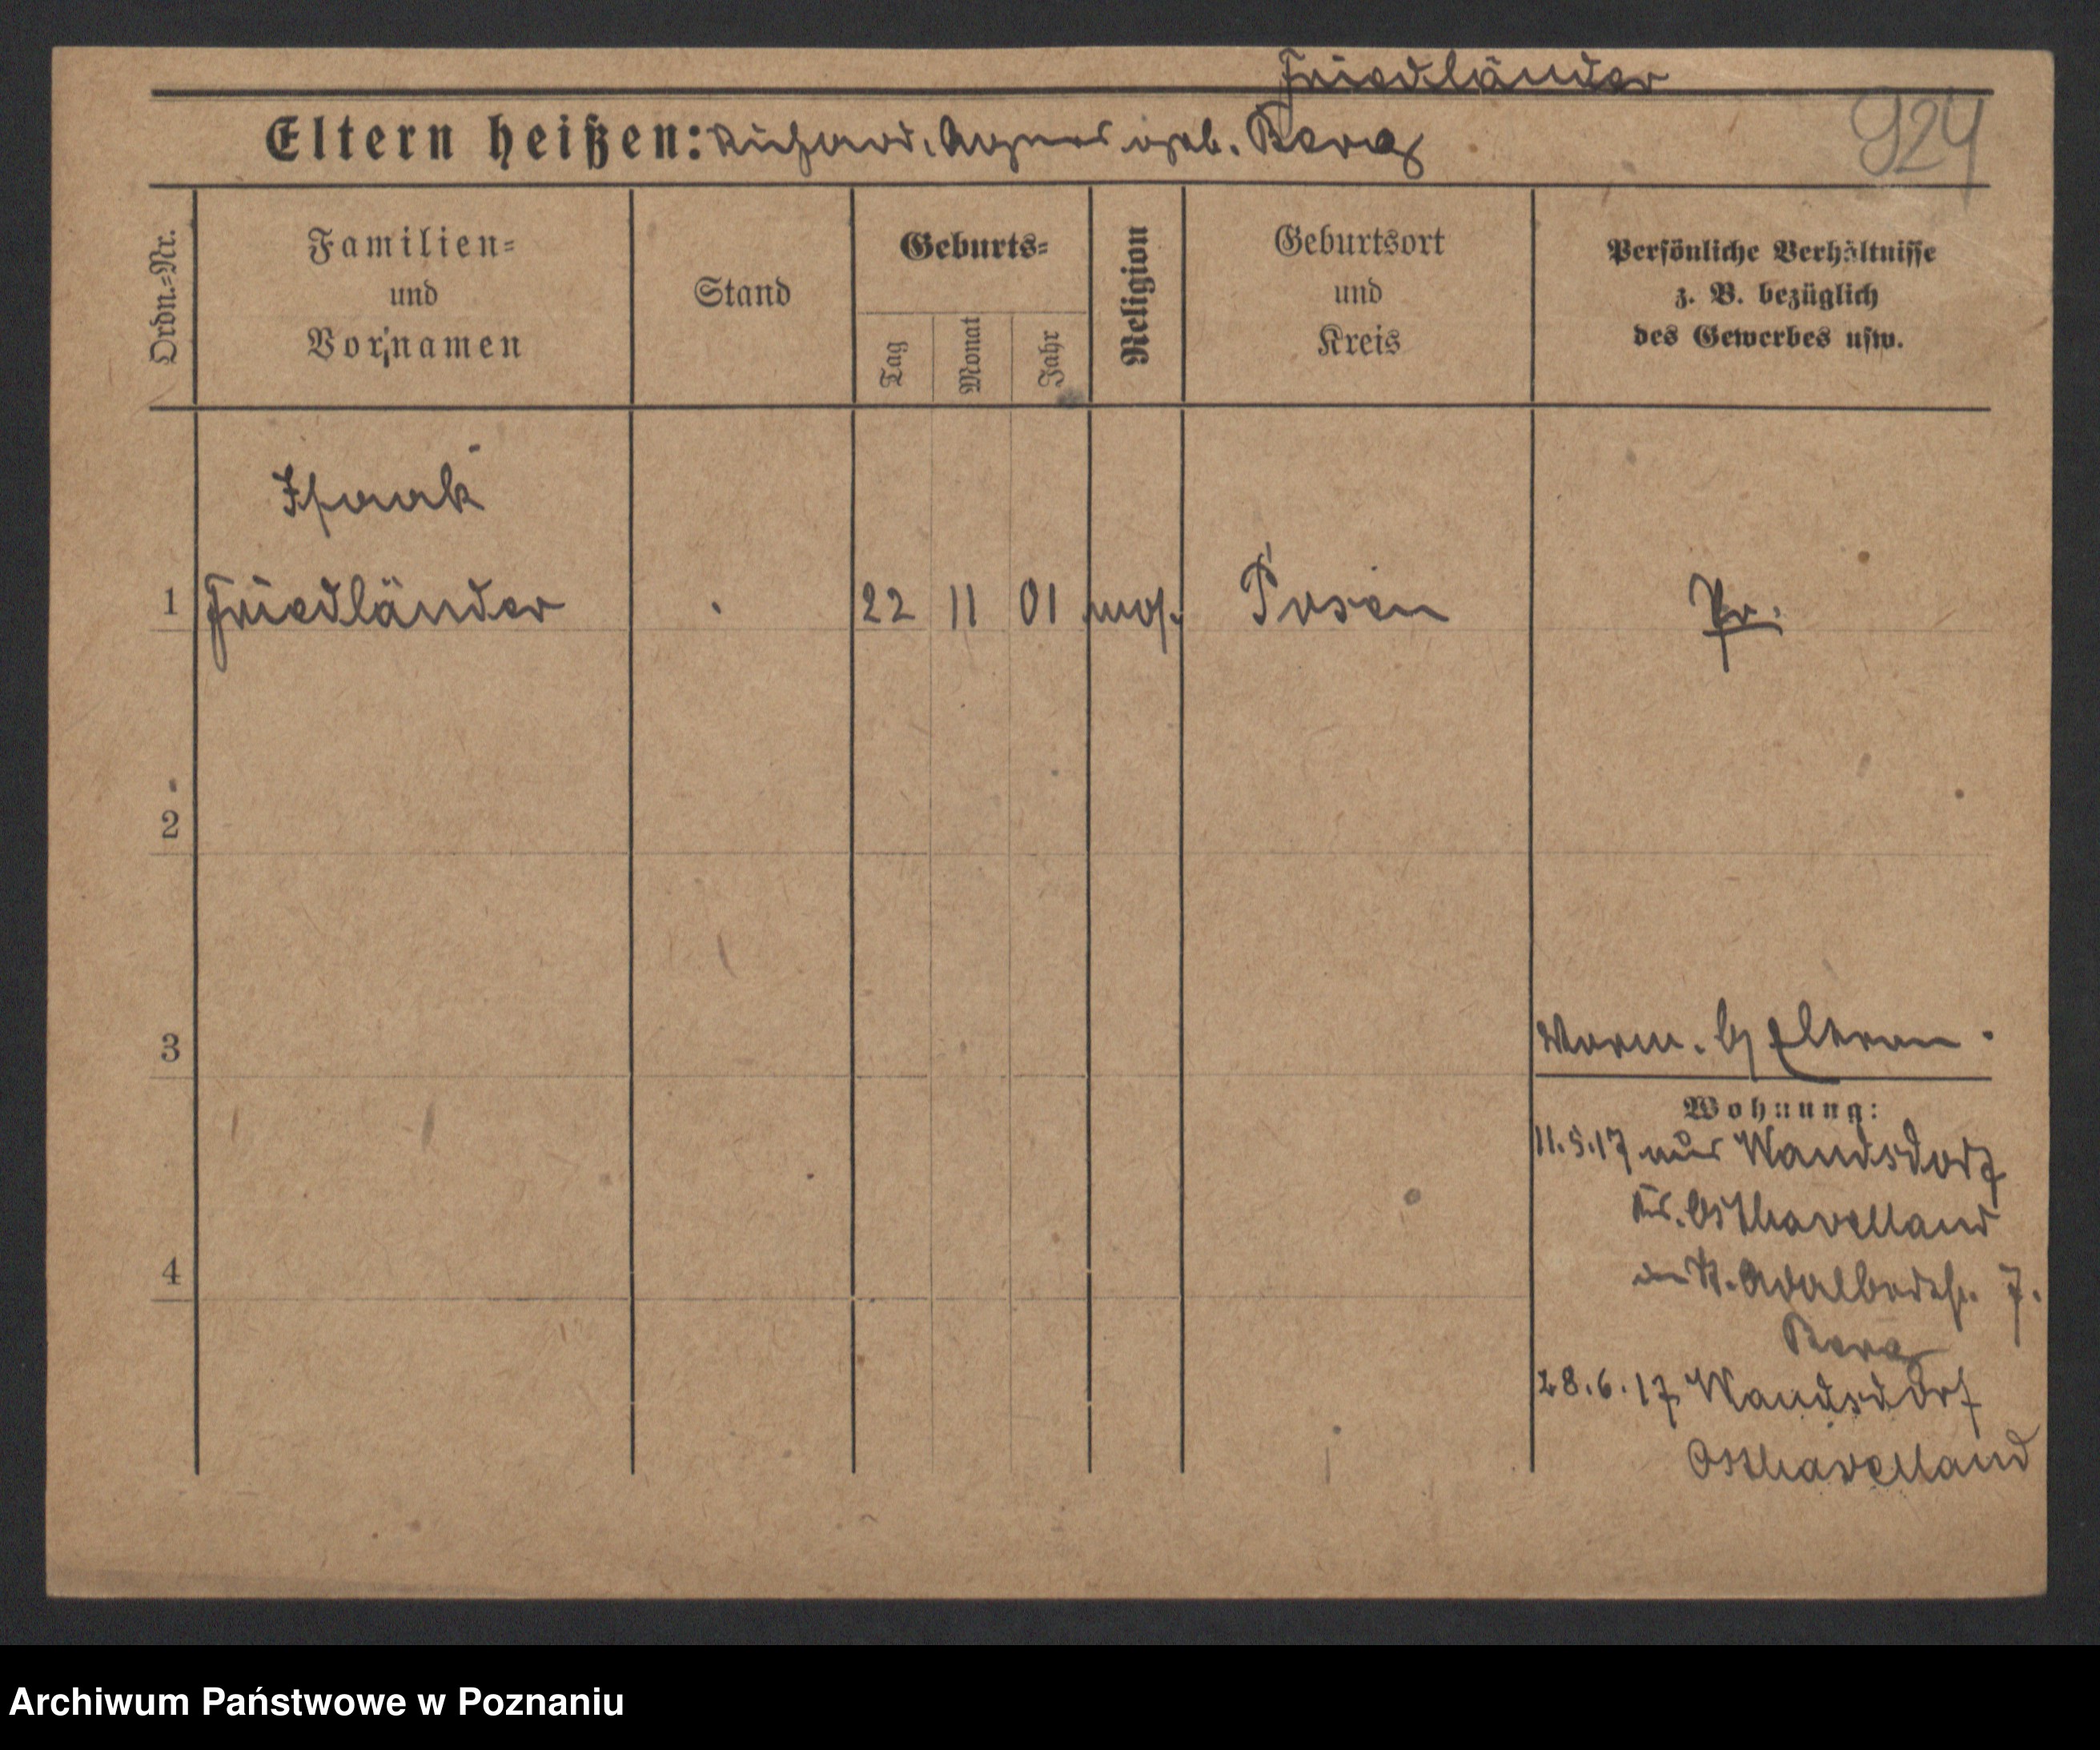 Friedländer
Eltern heißen: Richard, Agnes geb. Berg
924
Ordn.=Nr.
Familien=
und
Vornamen
Stand
Geburts=
Tag
Monat
Jahr
Religion
Geburtsort
und
Kreis
Persönliche Verhältnisse
z. B. bezüglich
des Gewerbes usw.
Isaak
1 Friedländer 22 11 01 mos. Posen Pr.
2
3
Vorm. b/ Eltern.
Wohnung:
11.5.17 aus Wandsdorf
Krs. Osthavelland
in St. Adalbertstr. 7.
Berg
4
28.6.17 Wandsdorf
Osthavelland
Archiwum Państwowe w Poznaniu